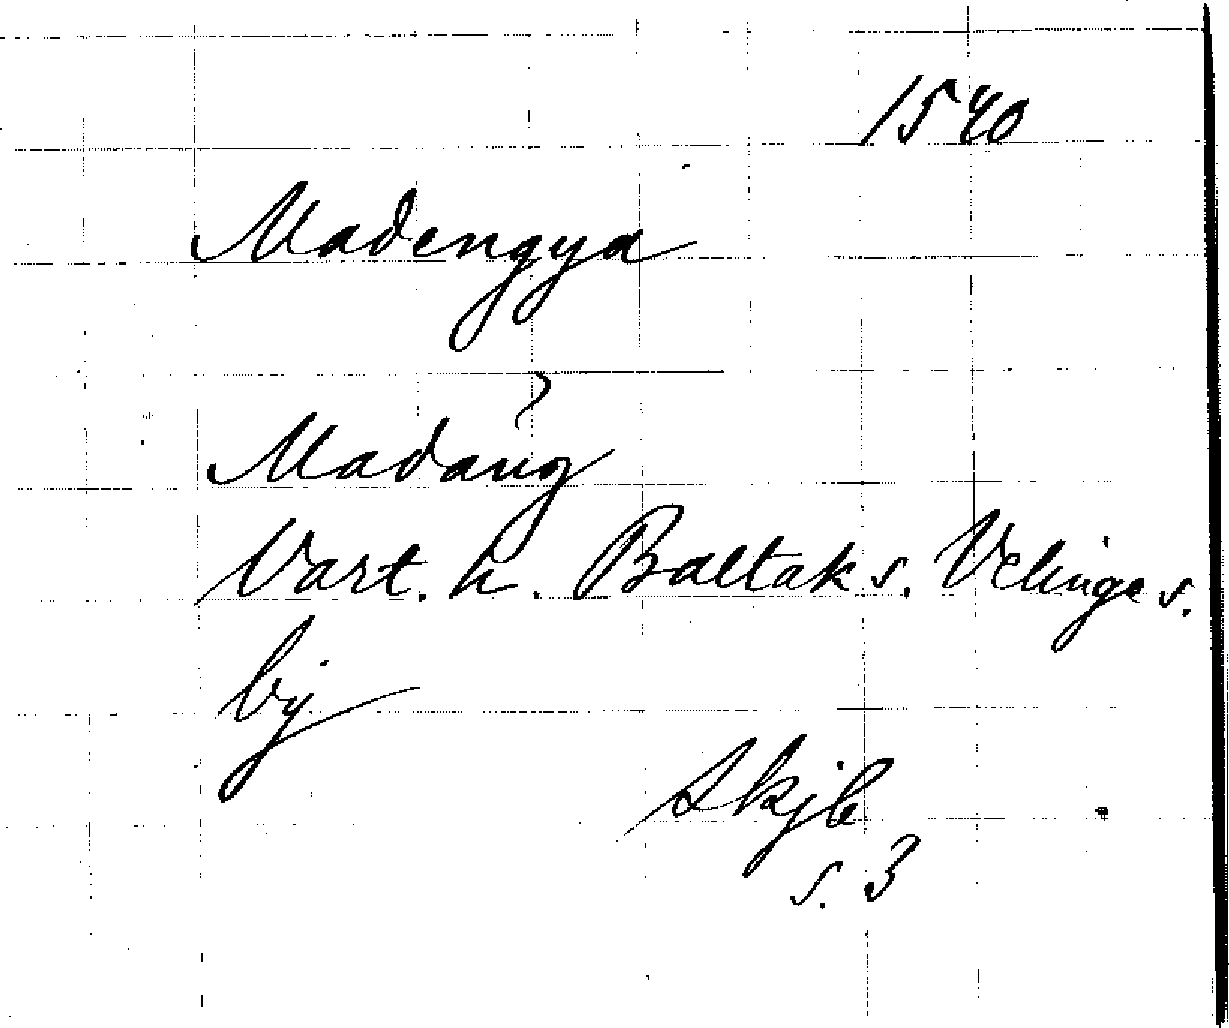 1540
Madengya
?
Madäng
Vart. h. Baltak s. Velinge s.
by
Skjb
s. 3